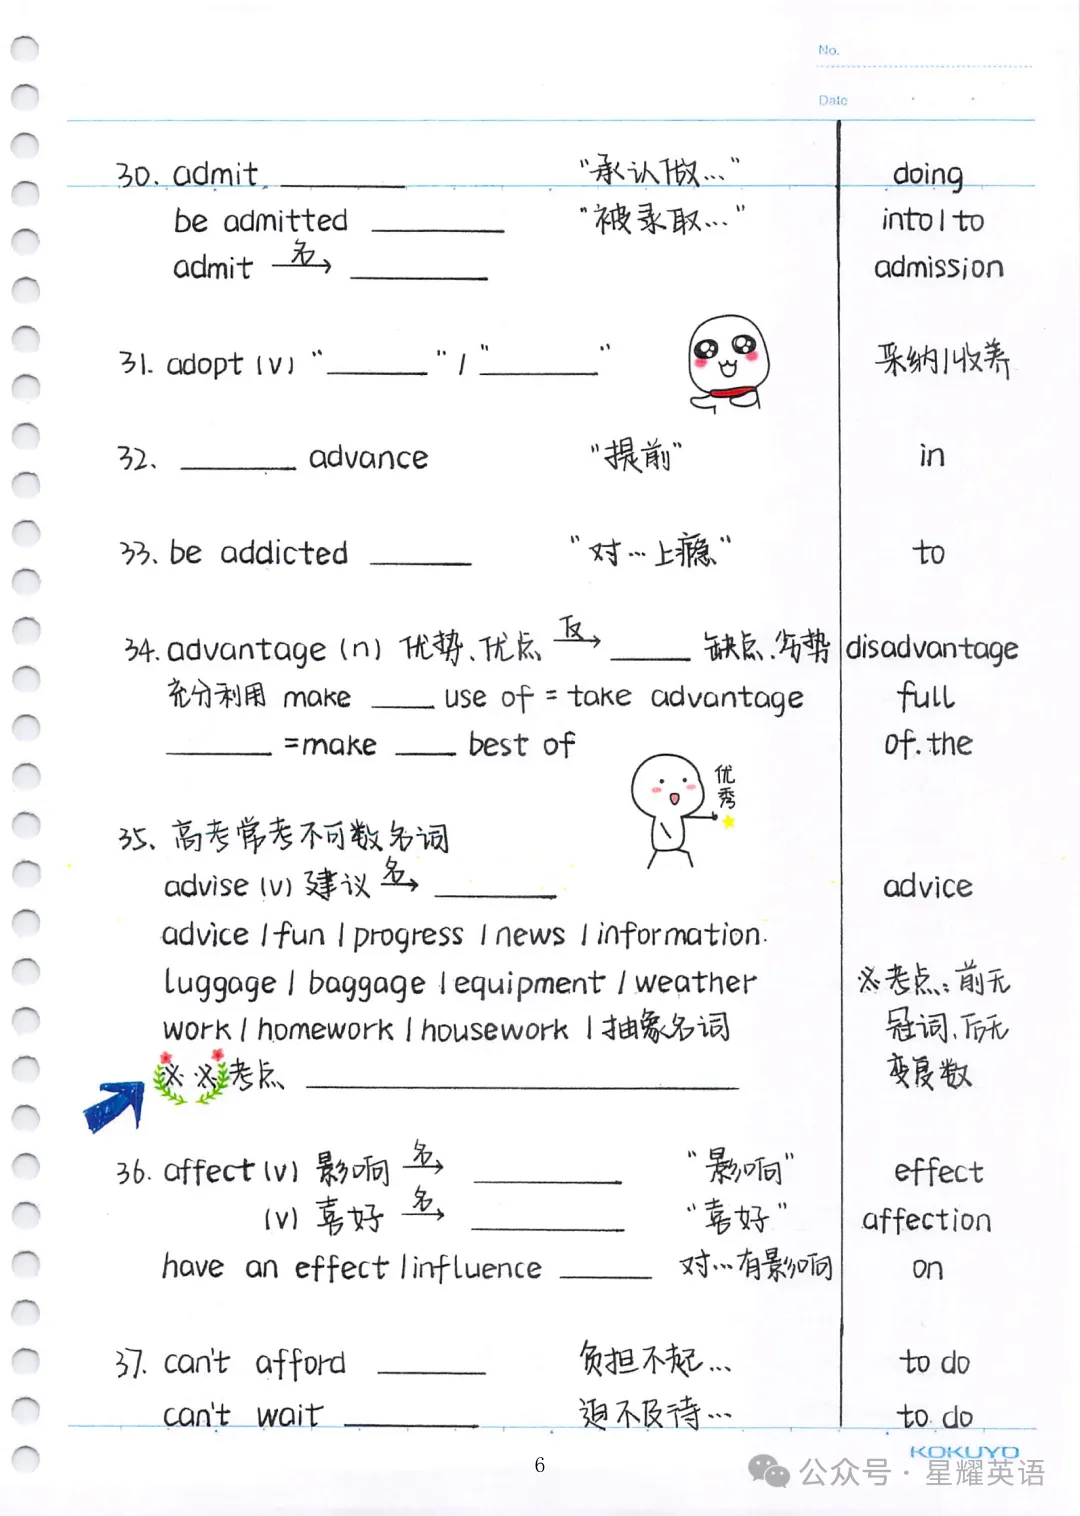 No.
Date
30. admit ______ "承认做…" doing
be admitted ______ "被录取…" into / to
admit 名→ ______ admission
31. adopt (v) "______" / "______" 采纳 / 收养
32. ______ advance "提前" in
33. be addicted ______ "对…上瘾" to
34. advantage (n) 优势、优点 反→ ______ 缺点、劣势 disadvantage
充分利用 make ____ use of = take advantage full
______ =make ____ best of of. the
优秀
35. 高考常考不可数名词
advise (v) 建议 名→ ______ advice
advice / fun / progress / news / information.
luggage / baggage / equipment / weather ※考点：前无
work / homework / housework / 抽象名词 冠词、后无
※ ※考点 ______ 变复数
36. affect (v) 影响 名→ ______ "影响" effect
(v) 喜好 名→ ______ "喜好" affection
have an effect / influence ______ 对…有影响 on
37. can't afford ______ 负担不起… to do
can't wait ______ 迫不及待… to do
KOKUYO
6
公众号 · 星耀英语